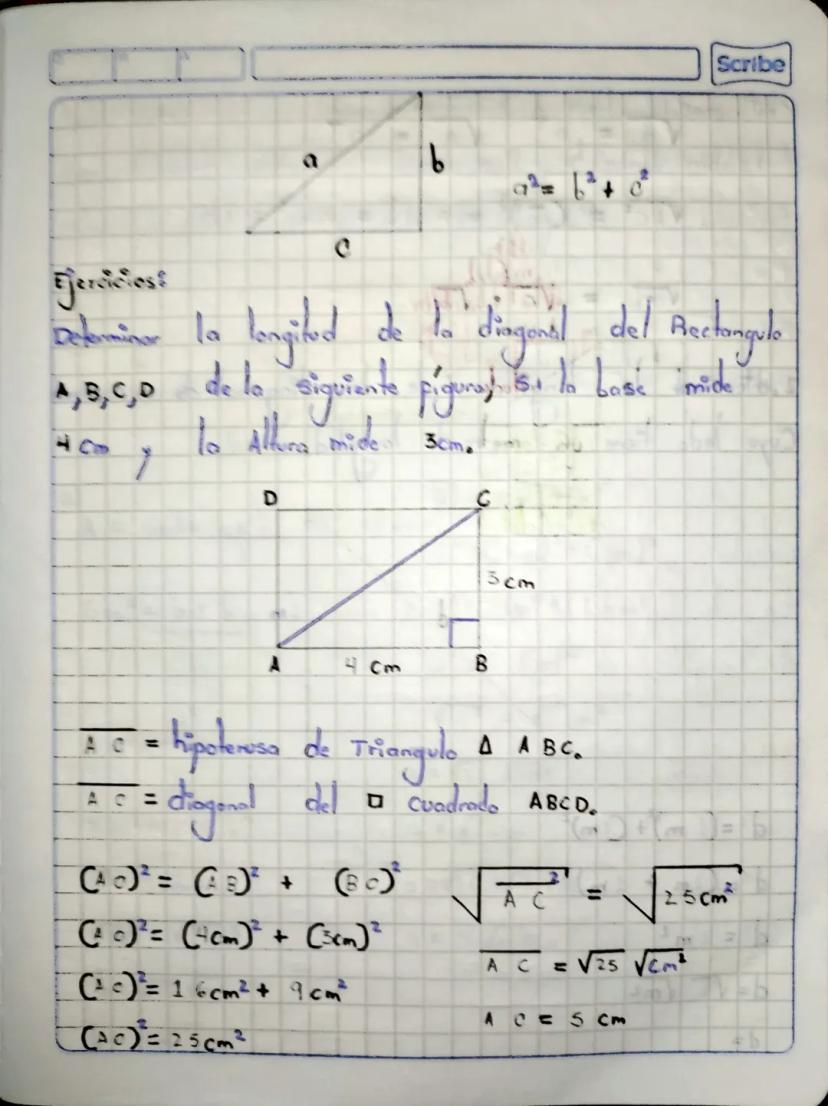 Scribe
a
b
a² = b² + c²
c
Ejercicios:
Determinar la longitud de la diagonal del Rectangulo
A, B, C, D de la siguiente figura, si la base mide
4 cm y la Altura mide 3cm.
D C
3 cm
A 4 cm B
A C = hipotenusa de Triangulo Δ A BC.
A C = diagonal del □ cuadrado ABCD.
(A C)² = (A B)² + (B C)²
(A C)² = (4cm)² + (3cm)²
(A C)² = 16cm² + 9cm²
(A C)² = 25cm²
√A C² = √25cm²
A C = √25 √cm²
A C = 5 cm